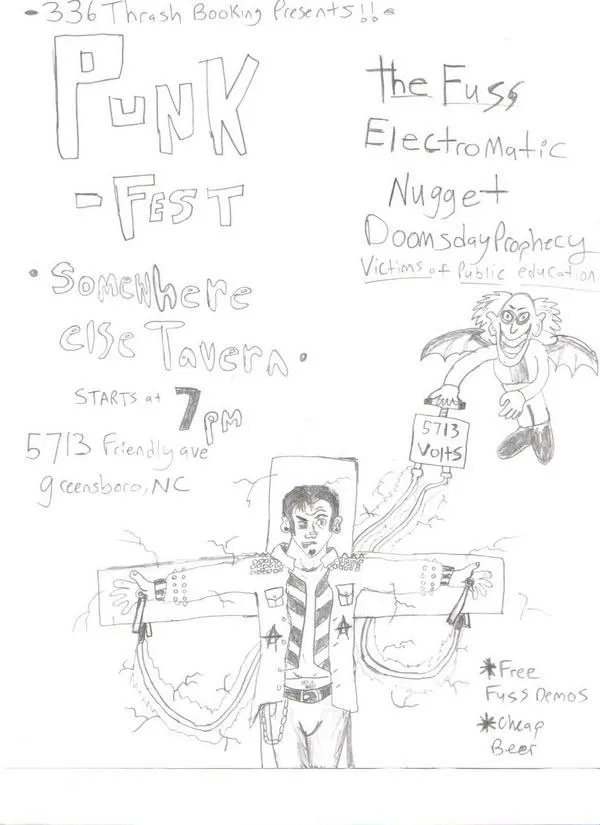 -336 Thrash Booking Presents!!-
PUNK
-FEST
the Fuss
Electromatic
Nugget
Doomsday Prophecy
Victims of Public education
• Somewhere
else Tavern •
STARTS at 7pm
5713 Friendly ave
greensboro, NC
5713
Volts
*Free
Fuss Demos
*Cheap
Beer